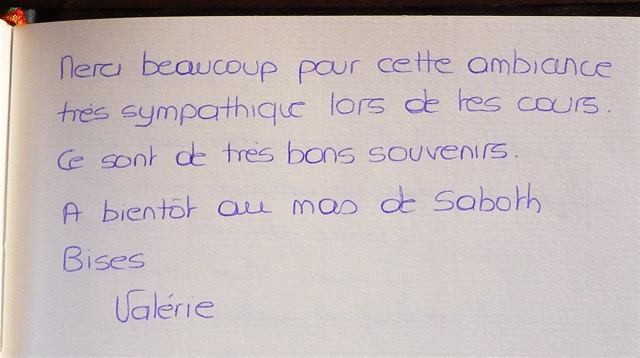 Merci beaucoup pour cette ambiance
très sympathique lors de tes cours.
Ce sont de très bons souvenirs.
A bientôt au mas de Saboth
Bises
Valérie